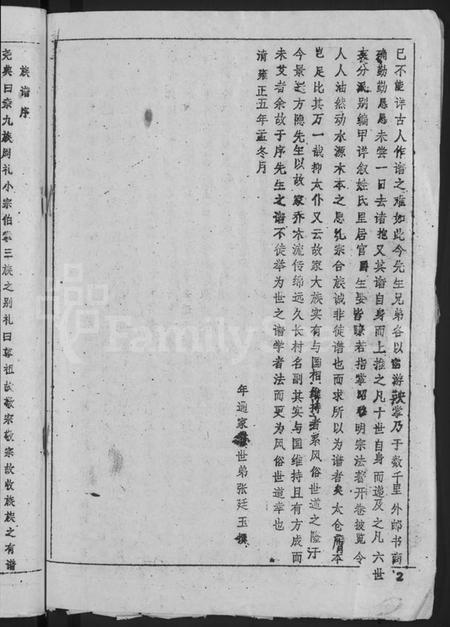 已不能详古人作谱之难如此今先生兄弟各以宦游鞅掌乃于数千里外邮书商
确勤勤恳恳未尝一日去诸抱又其谱自身而上推之凡十世自身而递及之凡六世
支分派别编甲详叙姓氏里居官爵生娶皆瞭若指掌昭穆明宗法著开卷披览令
人人油然动水源木本之思礼宗合族诚非徒谱也而求所以为谱者矣太仓有本
岂足比其万一哉抑太仆又云故家大族实有与国相维持者系风俗世道之隆汙
今景老方隐先生以故家乔木流传绵远久长材名副其实与国维持且有方成而
未艾者余故于序先生之谱不徒举为世之谱学者法而更为风俗世道幸也
清雍正五年孟冬月
年通家世弟张廷玉撰
2
族谱序
尧典曰亲九族周礼小宗伯掌三族之别礼曰尊祖故敬宗敬宗故收族族之有谱
FamilySearch